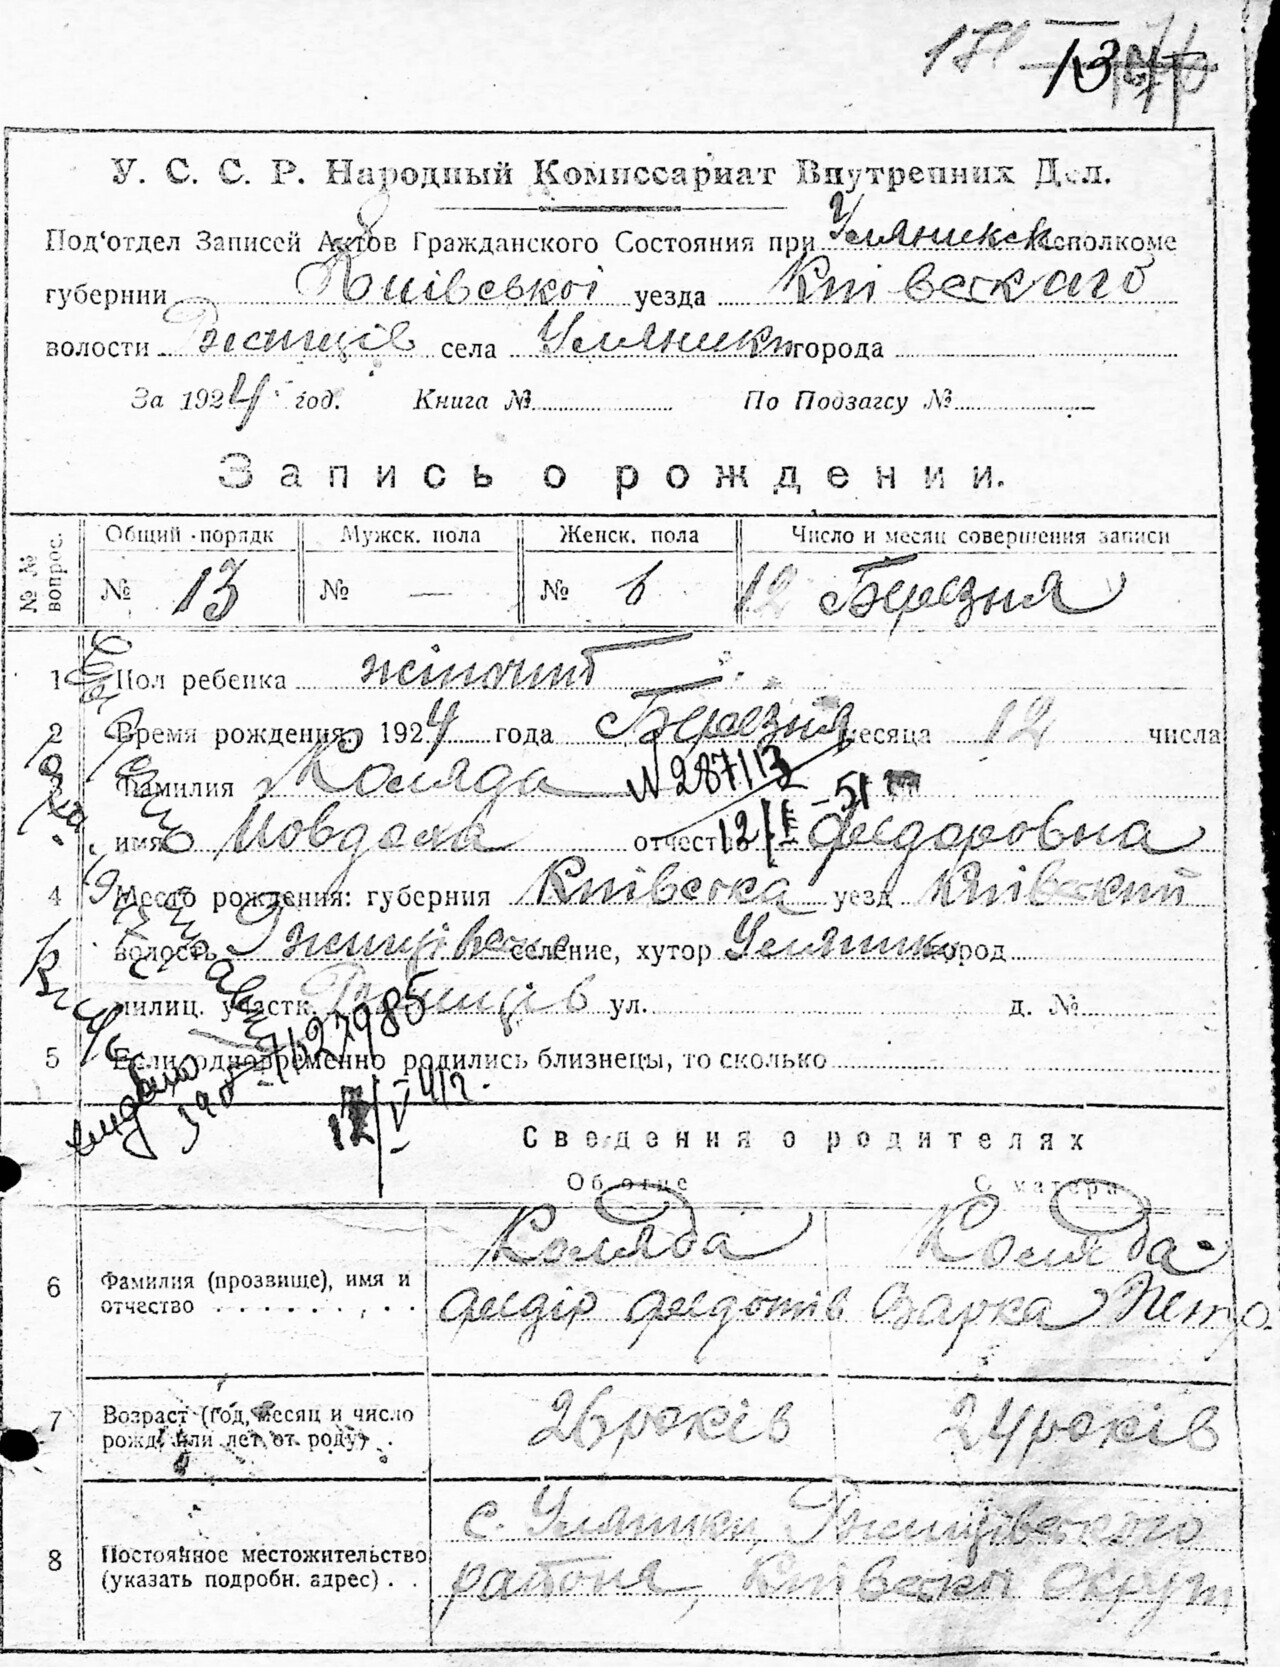 У. С. С. Р. Народный Комиссариат Внутренних Дел.
Под'отдел Записей Актов Гражданского Состояния при Уляникск Исполкоме
губернии Київської уезда Київського
волости Ржищів села Уляники города
За 1924 год. Книга № По Подзагсу №
Запись о рождении.
№ № вопрос. Общий порядк Мужск. пола Женск. пола Число и месяц совершения записи
№ 13 № — № 6 12 Березня
1 Пол ребенка жіночит
2 Время рождения: 1924 года Березня месяца 12 числа
Фамилия Коляда
N 287113
12/II-51
имя Мовдоха отчество Федоровна
4 Место рождения: губерния Київська уезд Київский
волость Ржищівська селение, хутор Уляники город
милиц. участк Ржищів ул. д. №
5 Если одновременно родились близнецы, то сколько
видано
Сведения о родителях
Об отце О матери
6 Фамилия (прозвище), имя и отчество
Коляда Федір Федотів
Коляда Варка Петро.
7 Возраст (год, месяц и число рожд. или лет от роду)
26 років 24 років
8 Постоянное местожительство (указать подробн. адрес)
с. Уляники, Ржищівського
района, Київськи Округи